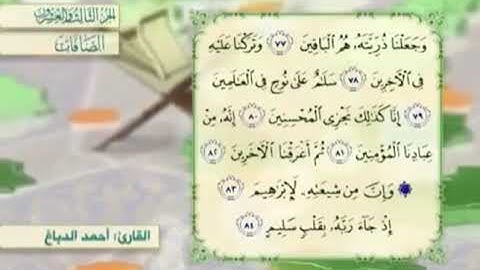 الجزء الثالث والعشرون
الصافات
وَجَعَلْنَا ذُرِّيَّتَهُۥ هُمُ الْبَاقِينَ ٧٧ وَتَرَكْنَا عَلَيْهِ
فِي الْآخِرِينَ ٧٨ سَلَامٌ عَلَىٰ نُوحٍ فِي الْعَالَمِينَ
٧٩ إِنَّا كَذَٰلِكَ نَجْزِي الْمُحْسِنِينَ ٨٠ إِنَّهُۥ مِنْ
عِبَادِنَا الْمُؤْمِنِينَ ٨١ ثُمَّ أَغْرَقْنَا الْآخَرِينَ ٨٢
۞ وَإِنَّ مِن شِيعَتِهِۦ لَإِبْرَاهِيمَ ٨٣
إِذْ جَاءَ رَبَّهُۥ بِقَلْبٍ سَلِيمٍ ٨٤
القارئ: أحمد الدباغ